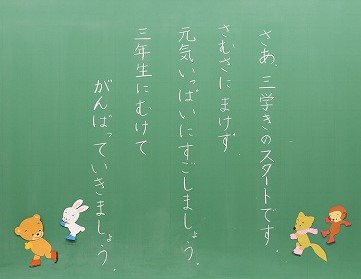 さあ、三学きのスタートです。
さむさにまけず、
元気いっぱいにすごしましょう。
三年生にむけて
がんばっていきましょう。